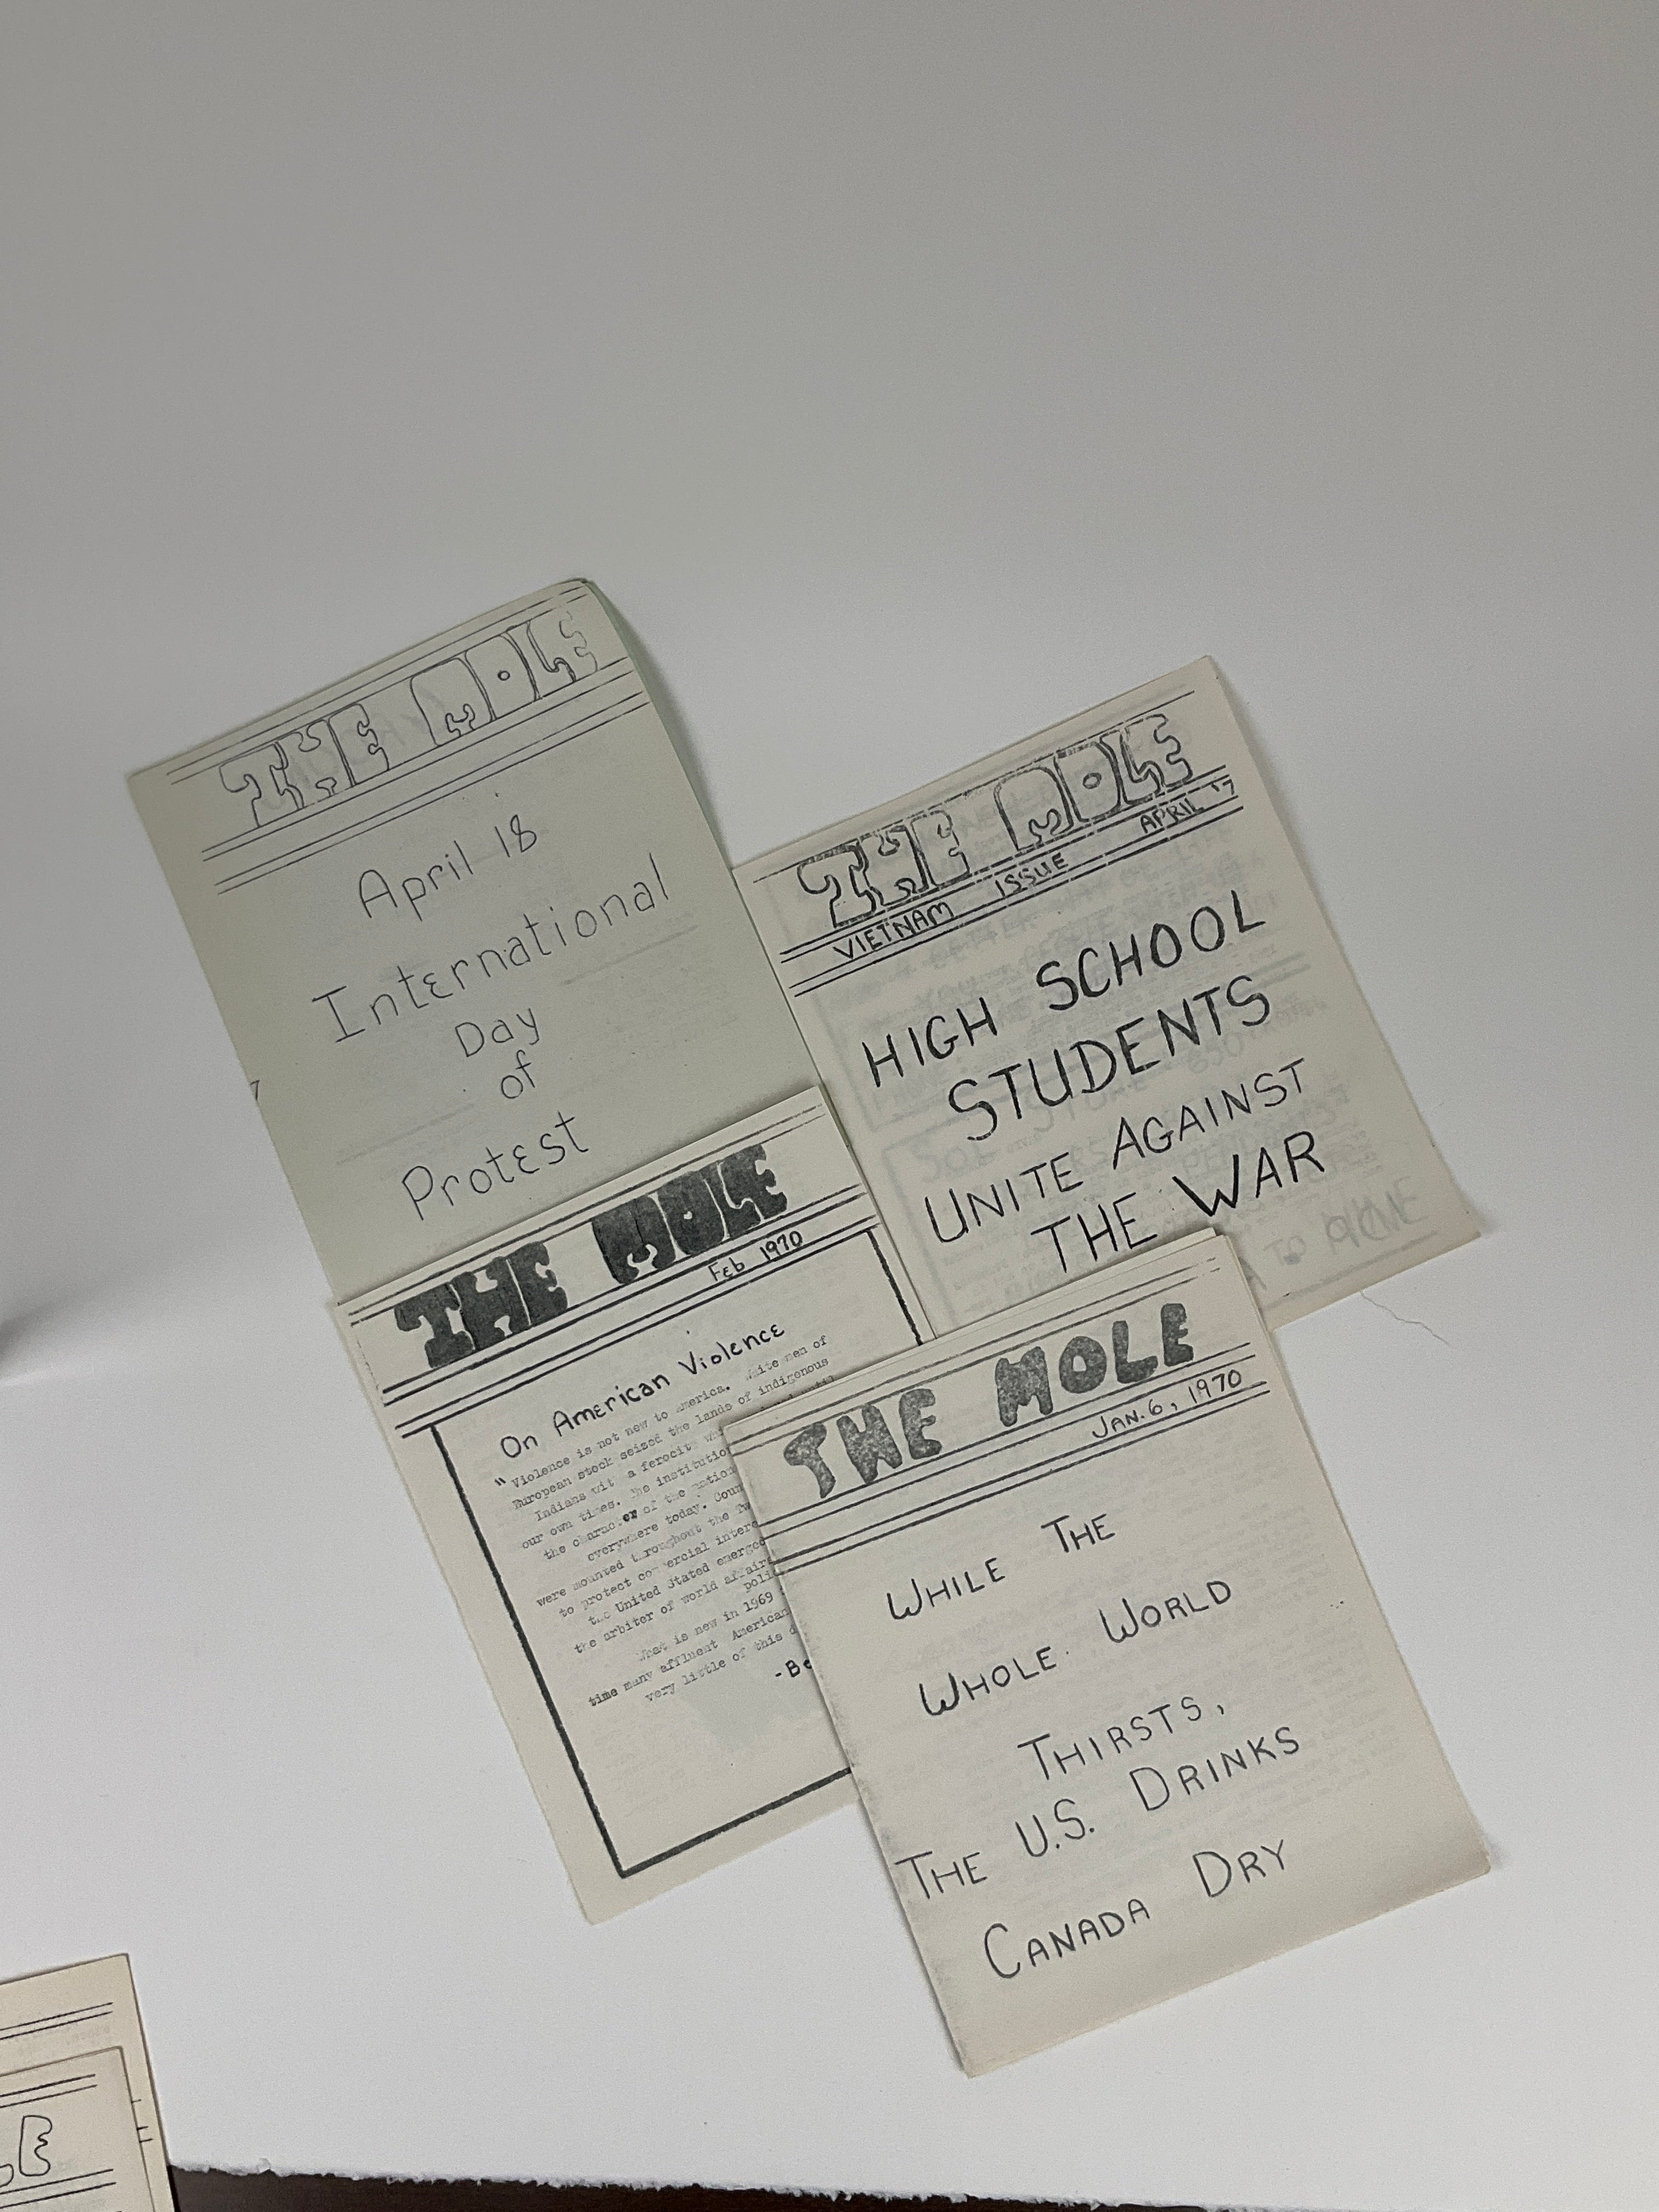 THE MOLE
April 18
International
Day
of
Protest
THE MOLE
VIETNAM ISSUE APRIL '7
HIGH SCHOOL
STUDENTS
UNITE AGAINST
THE WAR
THE MOLE
Feb 1970
On American Violence
"Violence is not new to America. White men of
European stock seized the lands of indigenous
Indians wit a ferocity
our own times. The institution
the character of the nation
everywhere today. Coun
were mounted throughout the Tw
to protect commercial intere
the United Stated emerged
the arbiter of world affairs
poli
What is new in 1969
time many affluent American
very little of this d
-Be
THE MOLE
JAN. 6, 1970
WHILE THE
WHOLE WORLD
THIRSTS,
THE U.S. DRINKS
CANADA DRY
LE